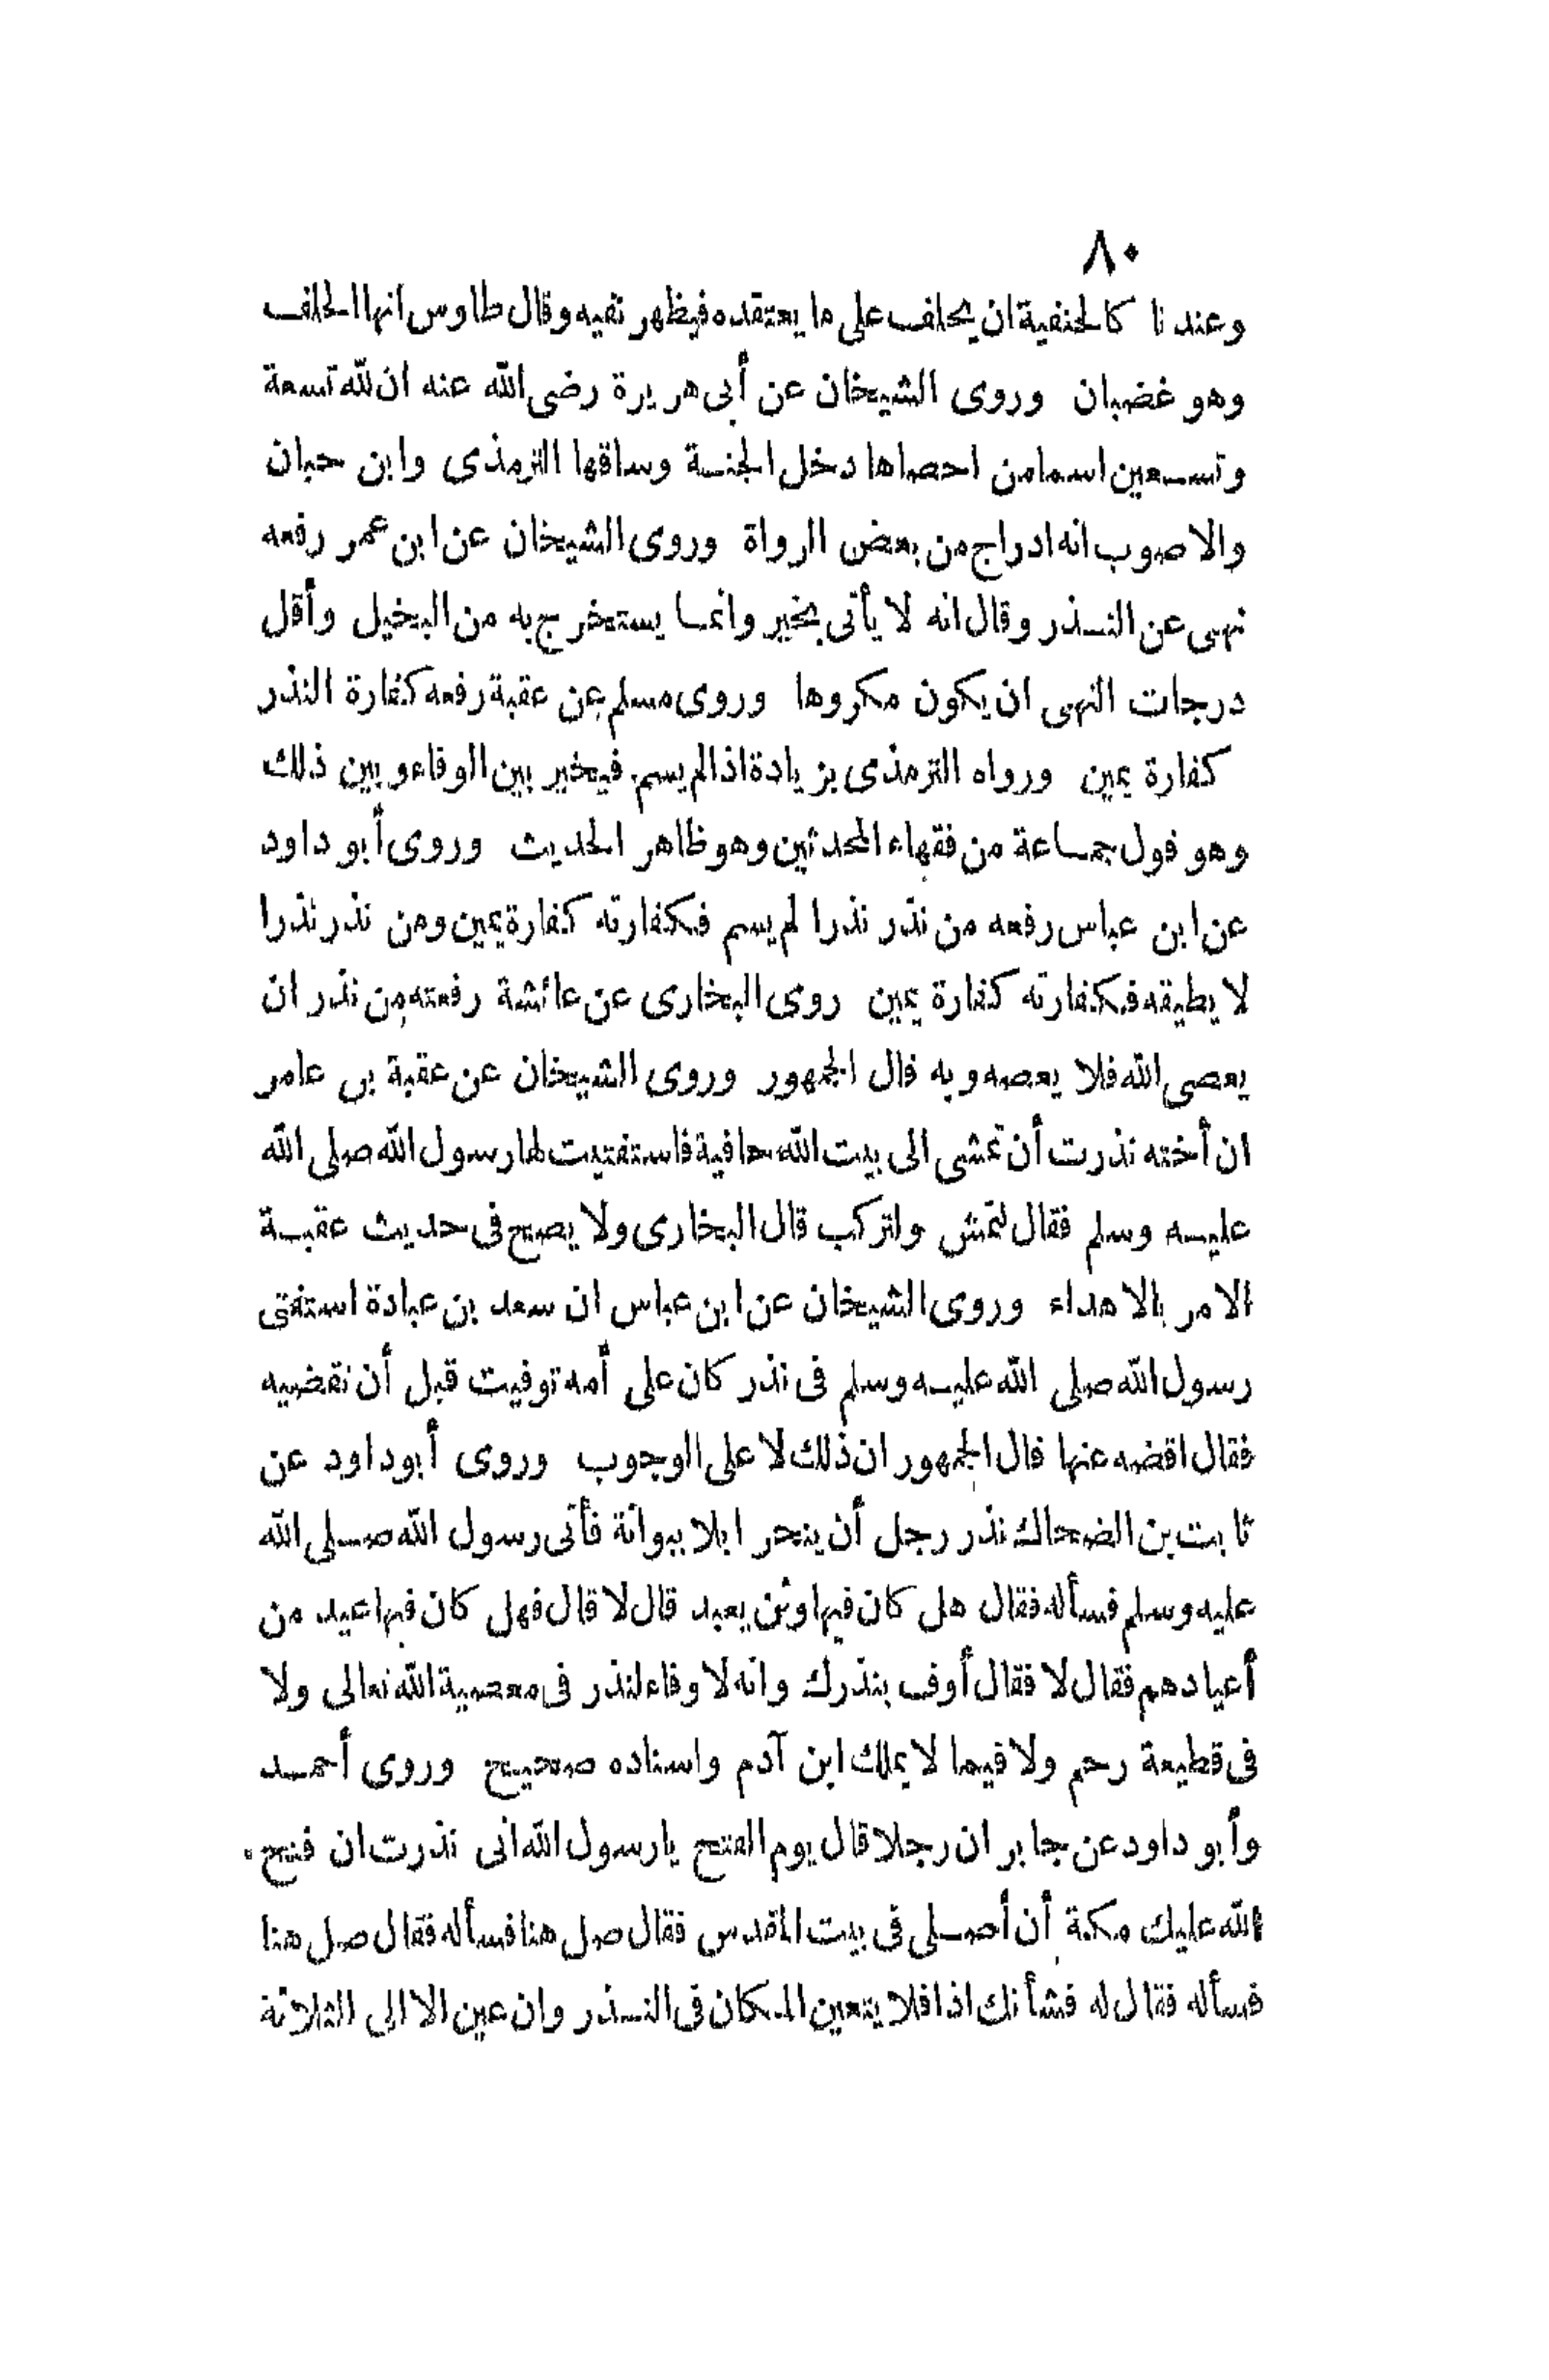 ٨٠
وعندنا كالحنفية ان يحلف على ما يعتقده فيظهر نفيه وقال طاوس انها الحلف
وهو غضبان وروى الشيخان عن أبى هريرة رضى الله عنه ان لله تسعة
وتسعين اسما من احصاها دخل الجنة وساقها الترمذى وابن حبان
والاصوب انه ادراج من بعض الرواة وروى الشيخان عن ابن عمر رفعه
نهى عن النذر وقال انه لا يأتى بخير وانما يستخرج به من البخيل وأقل
درجات النهى ان يكون مكروها وروى مسلم عن عقبة رفعه كفارة النذر
كفارة يمين ورواه الترمذى بزيادة اذا لم يسم فيخير بين الوفاء وبين ذلك
وهو قول جماعة من فقهاء المحدثين وهو ظاهر الحديث وروى أبو داود
عن ابن عباس رفعه من نذر نذرا لم يسم فكفارته كفارة يمين ومن نذر نذرا
لا يطيقه فكفارته كفارة يمين روى البخارى عن عائشة رفعته من نذر ان
يعصى الله فلا يعصه وبه قال الجمهور وروى الشيخان عن عقبة بن عامر
ان أخته نذرت أن تمشى الى بيت الله حافية فاستفتيت لها رسول الله صلى الله
عليه وسلم فقال لتمش ولتركب قال البخارى ولا يصح فى حديث عقبة
الامر بالاهداء وروى الشيخان عن ابن عباس ان سعد بن عبادة استفتى
رسول الله صلى الله عليه وسلم فى نذر كان على أمه توفيت قبل أن نقضيه
فقال اقضه عنها قال الجمهور ان ذلك لا على الوجوب وروى أبو داود عن
ثابت بن الضحاك نذر رجل أن ينحر ابلا ببوانة فأتى رسول الله صلى الله
عليه وسلم فسأله فقال هل كان فيها وثن يعبد قال لا قال فهل كان فيها عيد من
أعيادهم فقال لا فقال أوف بنذرك وانه لا وفاء لنذر فى معصية الله تعالى ولا
فى قطيعة رحم ولا فيما لا يملك ابن آدم واسناده صحيح وروى أحمد
وأبو داود عن جابر ان رجلا قال يوم الفتح يا رسول الله انى نذرت ان فتح
الله عليك مكة أن أصلى فى بيت المقدس فقال صل هنا فسأله فقال صل هنا
فسأله فقال له فشأنك اذا فلا يتعين المكان فى النذر وان عين الا الى الثلاثة